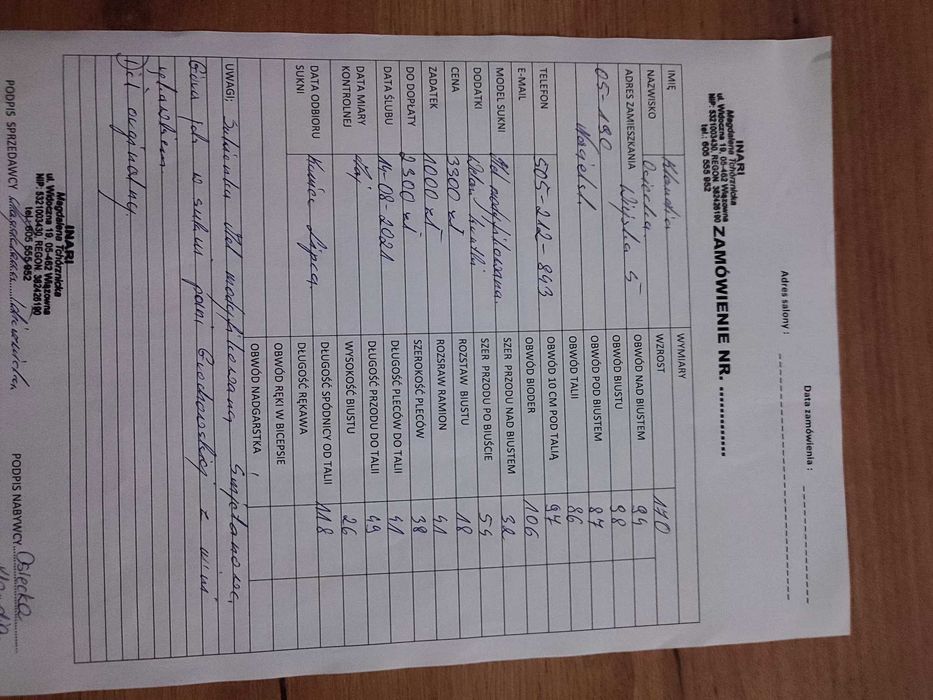 Data zamówienia :
Adres salony :
INARI
Magdalena Tchórznicka
ul. Widoczna 19, 05-462 Wiązowna
NIP: 5321003430, REGON: 382426190
tel.: 605 555 952
ZAMÓWIENIE NR. ..............
IMIĘ Klaudia
NAZWISKO Osiecka
ADRES ZAMIESZKANIA Wiejska 5
05-190 Nasielsk
TELEFON 505-212-893
E-MAIL
MODEL SUKNI modyfikowana
DODATKI
CENA 3300 zł
ZADATEK 1000 zł
DO DOPŁATY 2300 zł
DATA ŚLUBU 14-08-2021
DATA MIARY KONTROLNEJ Maj
DATA ODBIORU SUKNI Koniec Lipca
WYMIARY
WZROST 170
OBWÓD NAD BIUSTEM 94
OBWÓD BIUSTU 98
OBWÓD POD BIUSTEM 87
OBWÓD TALII 86
OBWÓD 10 CM POD TALIĄ 97
OBWÓD BIODER 106
SZER PRZODU NAD BIUSTEM 32
SZER PRZODU PO BIUŚCIE 54
ROZSTAW BIUSTU 18
ROZSRAW RAMION 41
SZEROKOŚĆ PLECÓW 38
DŁUGOŚĆ PLECÓW DO TALII 41
DŁUGOŚĆ PRZODU DO TALII 49
WYSOKOŚĆ BIUSTU 26
DŁUGOŚĆ SPÓDNICY OD TALII 118
DŁUGOŚĆ RĘKAWA
OBWÓD RĘKI W BICEPSIE
OBWÓD NADGARSTKA
UWAGI: Sukienka modyfikowana
Góra jak w sukni pani z
Dół oryginalny
INARI
Magdalena Tchórznicka
ul. Widoczna 19, 05-462 Wiązowna
NIP: 5321003430, REGON: 382426190
tel.: 605 555 952
PODPIS SPRZEDAWCY
PODPIS NABYWCY Osiecka
Klaudia